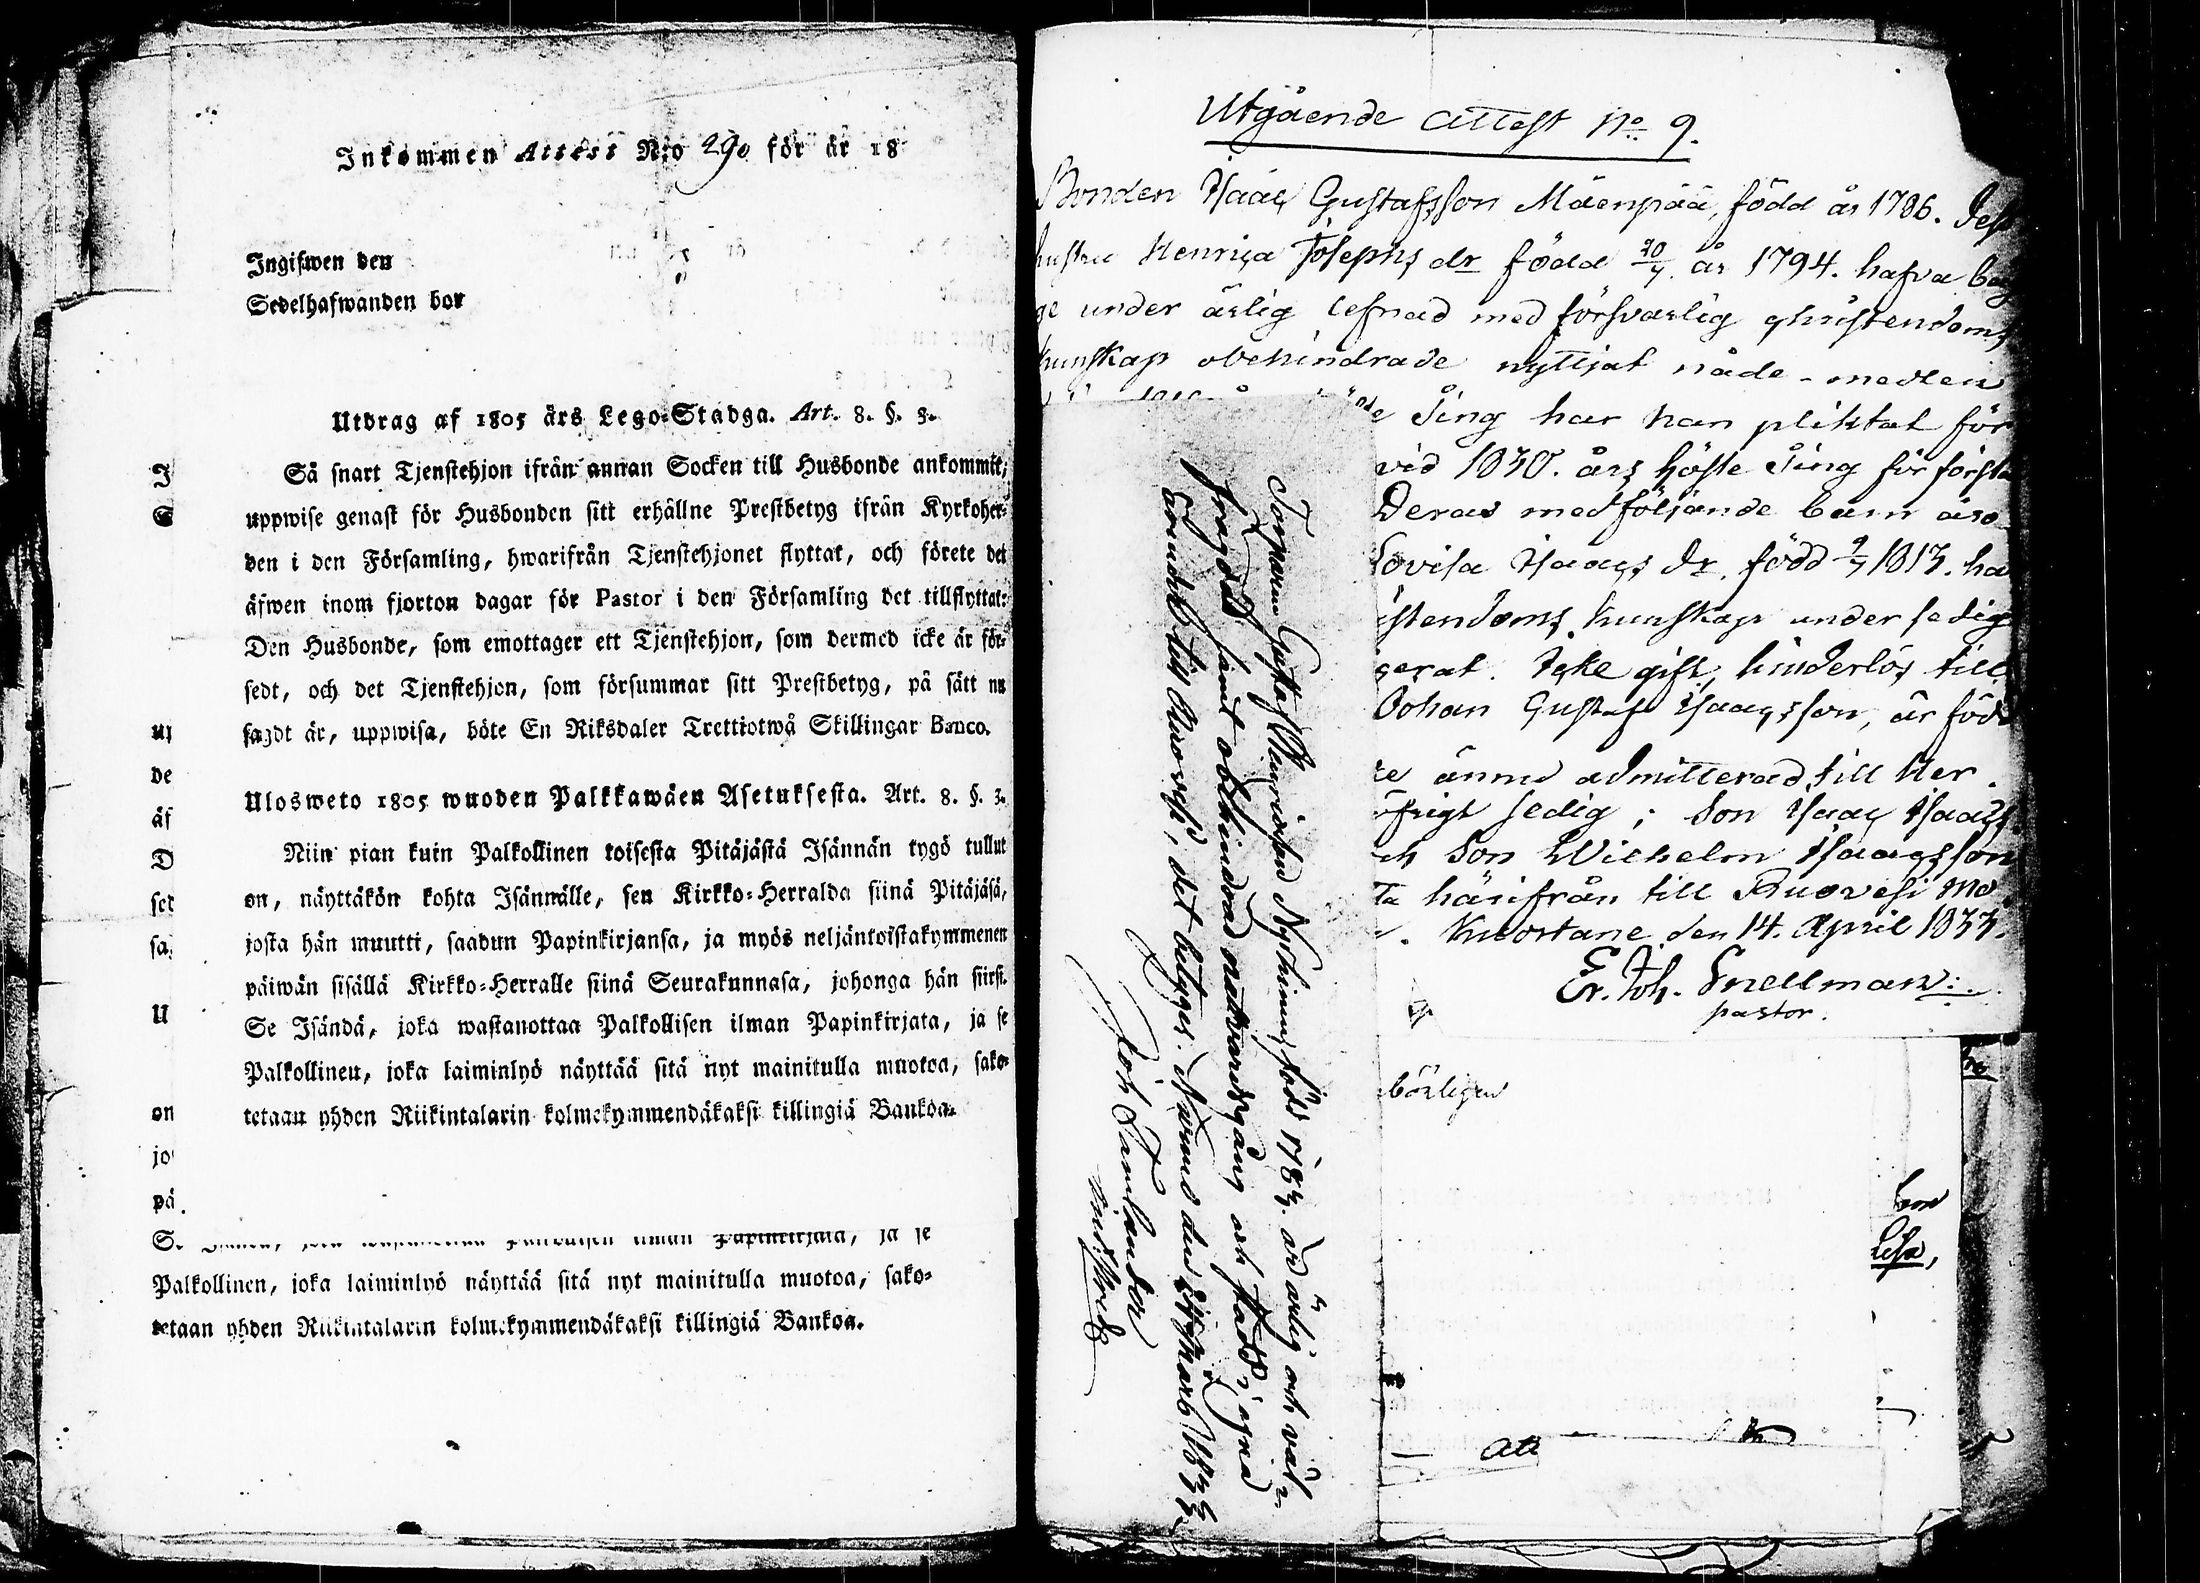 Inkommen Attest N:o 290 för år 18
Ingifwen den
Sedelhafwanden bor
Utdrag af 1805 års Lego-Stadga. Art. 8. §. 3.
Så snart Tjenstehjon ifrån annan Socken till Husbonde ankommit,
uppwise genast för Husbonden sitt erhållne Prestbetyg ifrån Kyrkoher-
den i den Församling, hwarifrån Tjenstehjonet flyttat, och förete det
äfwen inom fjorton dagar för Pastor i den Församling det tillflyttat.
Den Husbonde, som emottager ett Tjenstehjon, som dermed icke är för-
sedt, och det Tjenstehjon, som försummar sitt Prestbetyg, på sätt nu
sagdt är, uppwisa, böte En Riksdaler Trettiotwå Skillingar Banco.
Ulosweto 1805 wuoden Palkkawäen Asetuksesta. Art. 8. §. 3.
Niin pian kuin Palkollinen toisesta Pitäjästä Isännän tygö tullut
on, näyttäkön kohta Isännälle, sen Kirkko-Herralda siinä Pitäjäsä,
josta hän muutti, saadun Papinkirjansa, ja myös neljäntoistakymmenen
päiwän sisällä Kirkko-Herralle siinä Seurakunnasa, johonga hän siirsi.
Se Isändä, joka wastanottaa Palkollisen ilman Papinkirjata, ja se
Palkollinen, joka laiminlyö näyttää sitä nyt mainitulla muotoa, sako-
tetaan yhden Riikintalarin kolmekymmendäkaksi killingiä Bankoa.
I
S
up
de
äf
D
sed
sa
U
on
jo
pä
Papinkirjata, ja se
Palkollinen, joka laiminlyö näyttää sitä nyt mainitulla muotoa, sako-
tetaan yhden Riikintalarin kolmekymmendäkaksi killingiä Bankoa.
Utgående Attest No 9.
Bonden Isaac Gustafsson Mäenpää, född år 1786. Dess
hustru Henrica Josephs dr född 20/7 år 1794. hafva båg
ge under ärlig lefnad med försvarlig christendoms
kunskap obehindrade nyttjat nåde-medlen
Ting har han pliktat för
vid 1830. års höste Ting för första
Deras medföljande barn äro
Lovisa Isaacs dr. född 9/7 1813. ha
istendoms kunskap under ledig
gerat. Icke gift, hinderlös till
Johan Gustaf Isaacsson, är född
ännu admitterad till Her
öfrigt ledig; Son Isaac Isaacs
ch Son Wilhelm Isaacsson
ta härifrån till Ruovesi Mo
Kuortane den 14. April 1833.
Er. Joh. Snellman
pastor.
Torparen Gustaf Nyhinen, född 1783. är ärlig och väl
fragdad samt obehindrad nattvardsgång och stadd i egna
ärender till Ruovesi, det betygar. den Mars 1833
Joh Tamlander
börligen
Att